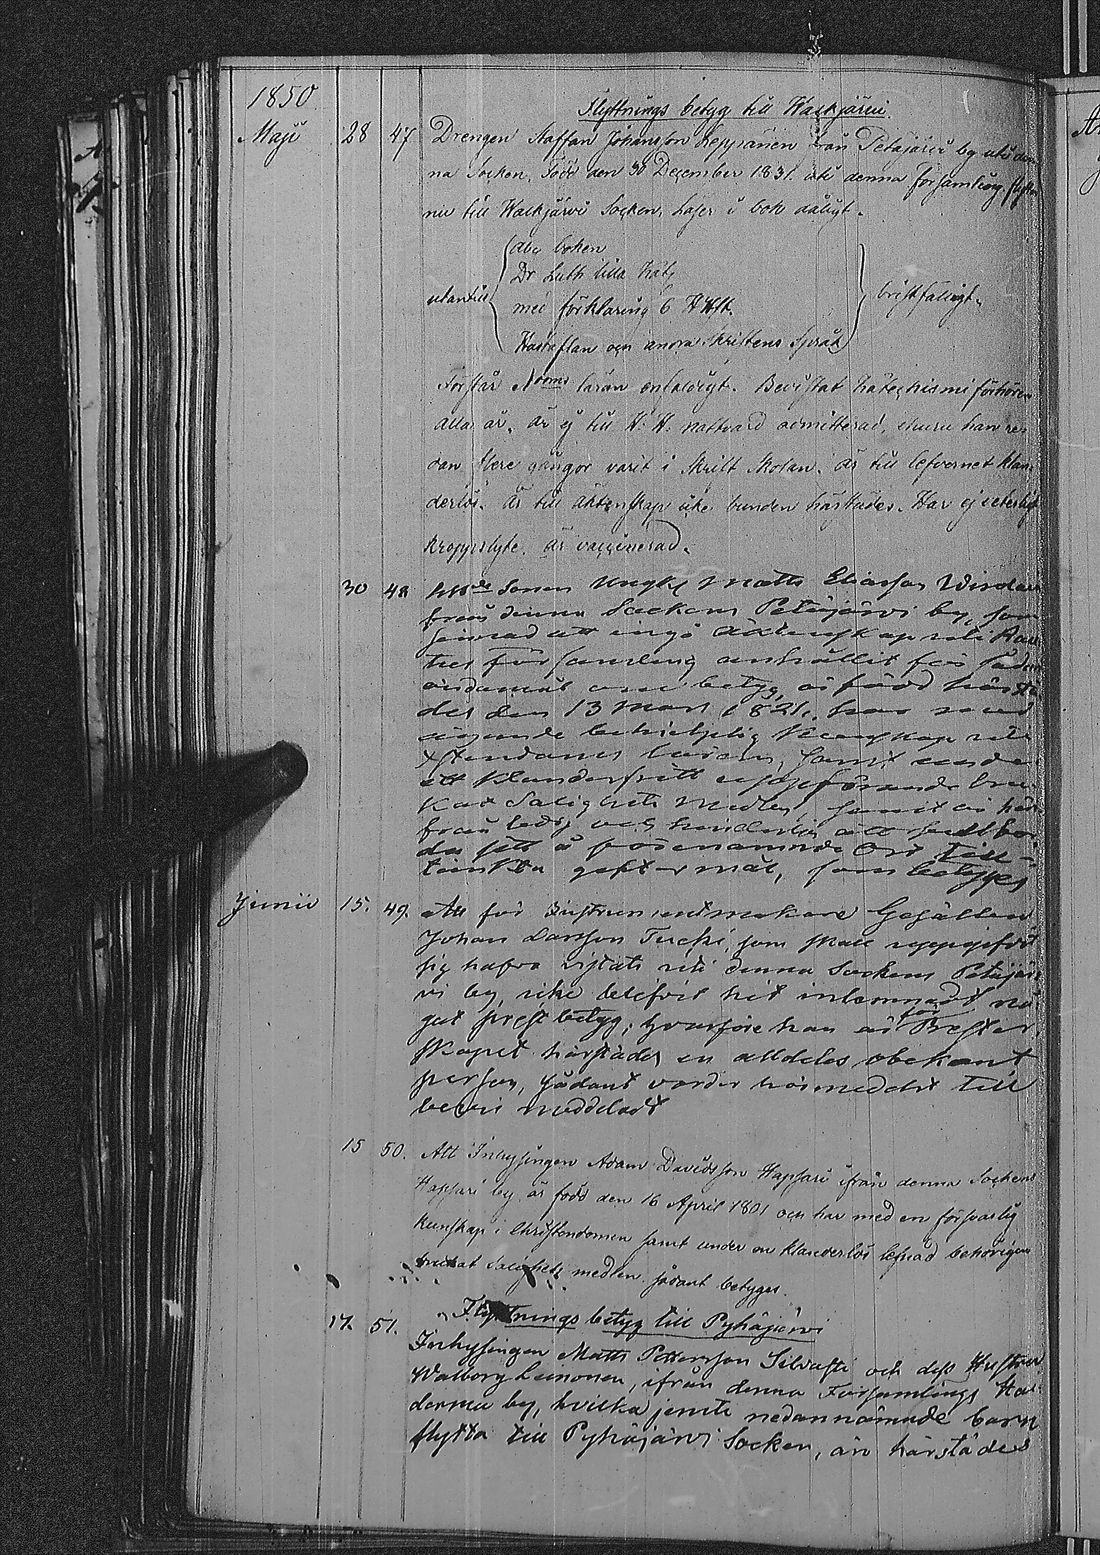 1850
Flyttnings betyg till Walkjärvi.
Maji 28 47 Drengen Staffan Johansson Leppänen från Petäjärvi by uti den-
na Socken, Född den 30 December 1831. uti denna församling, flyttar
nu till Walkjärvi Socken, Läser i bok dåligt.
utantill
abc boken
Dr Luth lilla Kat;
med förklaring 6 H Hst.
Hustaflan och andra Skriftens Språk
bristfälligt.
Förstår Nådens läran enfaldigt. Bevistat Katechismi förhören
alla år. Är ej till H. H. nattvard admitterad, ehuru han re-
dan flere gångor varit i Skrift Skolan. är till lefvernet klan-
derlös. Är till äktenskap icke bunden härstädes. Har ej
kroppslyte. är vaccinerad.
30 48 Sonen Ungk; Matts Eliasson
från denna Sockens Petäjärvi by, som
att ingå Äktenskap uti
församling anhållit för
ändamål om betyg, är född härstä-
des den 13 Mars 1821, har med
Kunskap uti
Christendoms läran, samt under
ett klanderfritt uppförande bru-
kat Salighets Medlen, samt är här-
ifrån ledig och hinderlös att
sitt å förenämnde Ort till-
tänkta giftermål, som betyges
Junii 15. 49. Att för Gesällen
Johan Larsson Tucki, som skall uppgifvit
sig hafva vistats uti denna Sockens Petäjär-
vi by, icke blifvit hit inlemnadt nå-
got prestbetyg, hvarföre han är för Prester-
skapet härstädes en alldeles obekant
person, sådant varder härmedelst till
bevis meddeladt
15 50. Att Inhysingen Adam Davidsson Hapsari ifrån denna Sockens
Hapsari by, är född den 16 April 1801 och har med en försvarlig
kunskap i Christendomen samt under en klanderlös lefnad behörigen
brukat Salighets medlen sådant betyges.
Flyttnings betyg till Pyhäjärvi
17. 51. Inhysingen Matts Pettersson Silvasti och dess Hustru
Walborg Leinonen, ifrån denna Församlings
by, hvilka jemte nedannämnde barn
flytta till Pyhäjärvi Socken, äro härstädes